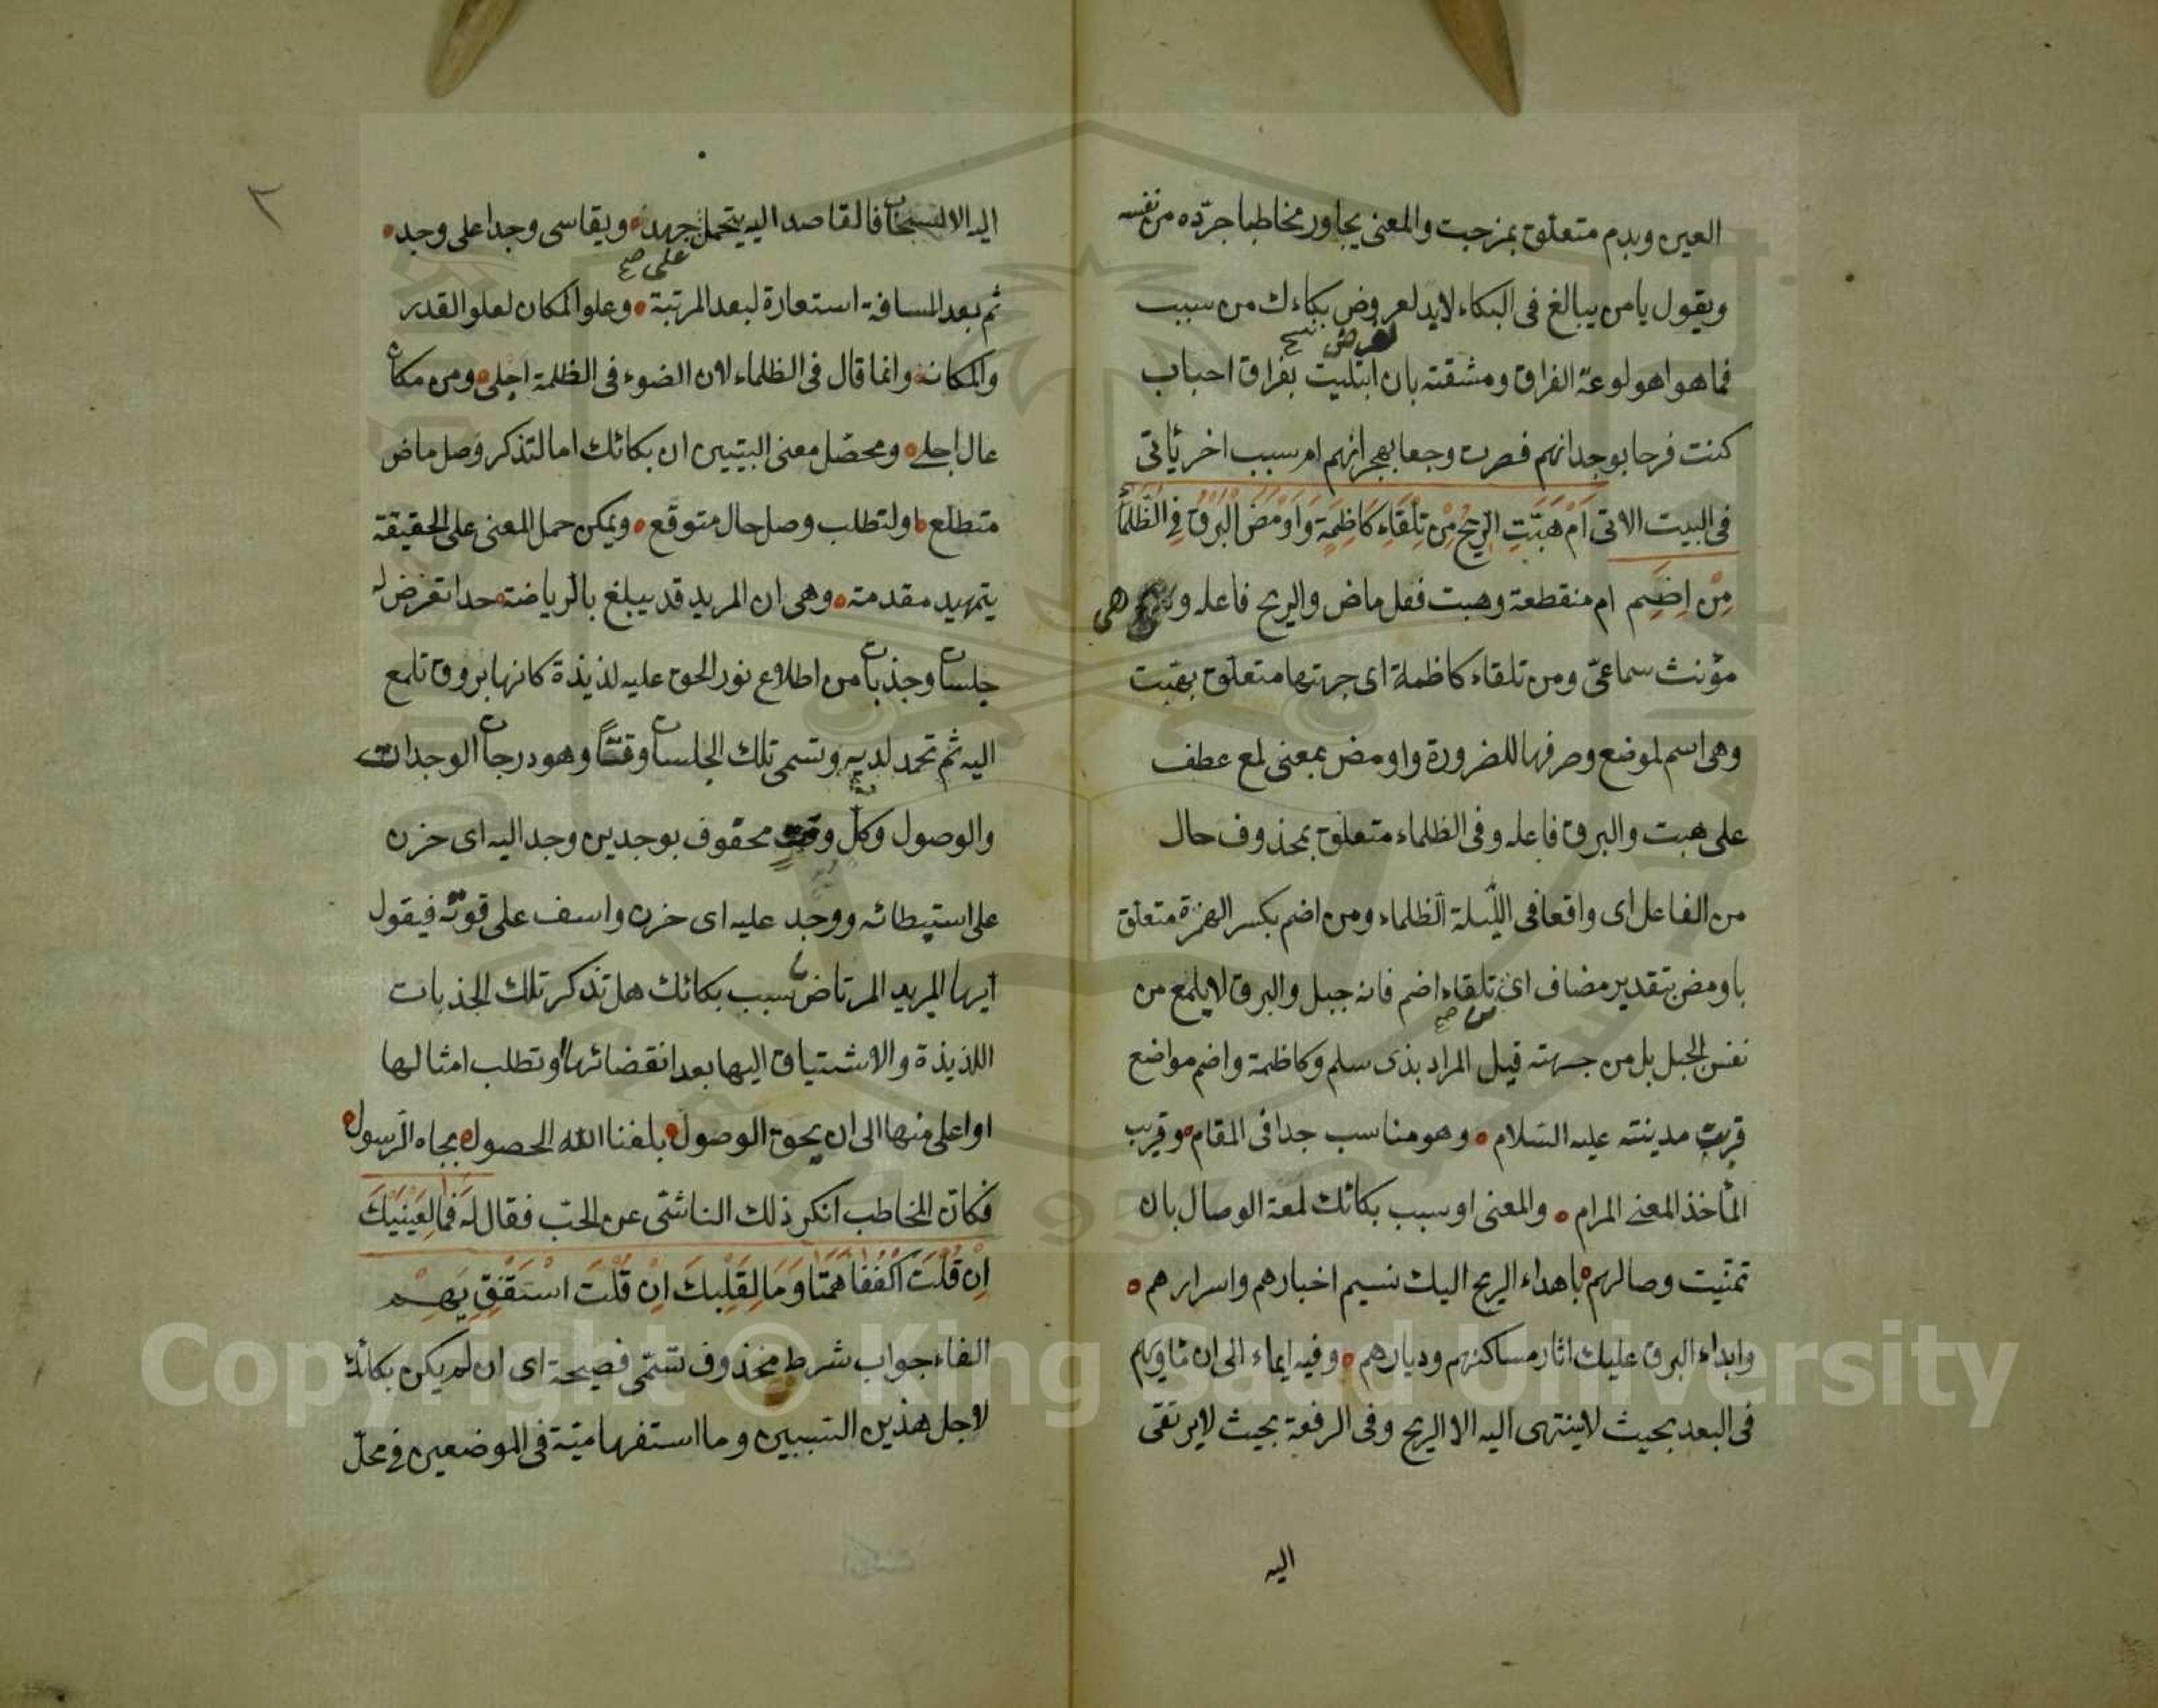 العين وبدم متعلق بمزجت والمعنى يحاور مخاطبا جرّده من نفسه
ويقول يا من يبالغ فى البكاء لابد لعروض بكاءك من سبب
لعرض نسخ
فما هو اهو لوعة الفراق ومشقته بان ابتليت بفراق احباب
كنت فرحا بوجدانهم فصرت وجعا بهجرانهم ام سبب اخر يأتى
فى البيت الاتى اَمْ هَبَّتِ الرِّيحُ مِنْ تِلْقَاءِ كَاظِمَةٍ وَاَوْمَضَ الْبَرْقُ فِى الظَّلْمَاءِ
مِنْ اِضَمِ ام منقطعة وهبت فعل ماض والريح فاعله وهى
مؤنث سماعىّ ومن تلقاء كاظمة اى جهتها متعلق بهبت
وهى اسم لموضع وصرفها للضرورة واومض بمعنى لمع عطف
على هبت والبرق فاعله وفى الظلماء متعلق بمحذوف حال
من الفاعل اى واقعا فى الليلة الظلماء ومن اضم بكسر الهمزة متعلق
باومض بتقدير مضاف اى تلقاء اضم فانه جبل والبرق لا يلمع من
من صح
نفس الجبل بل من جهته قيل المراد بذى سلم وكاظمة واضم مواضع
قريب مدينته عليه السلام وهو مناسب جدا فى المقام وقريب
المأخذ لمعنى المرام والمعنى او سبب بكائك لمعة الوصال بان
تمنّيت وصالهم باهداء الريح اليك نسيم اخبارهم واسرارهم
وابداء البرق عليك اثار مساكنهم وديارهم وفيه ايماء الى ان مثاويهم
فى البعد بحيث لا ينتهى اليه الا الريح وفى الرفعة بحيث لا يرتقى
اليه
٣
اليه الا السبحات فالقاصد اليه يتحمل جهدا ويقاسى وجدا على وجد
على صح
ثم بعد المسافة استعارة لبعد المرتبة وعلو المكان لعلو القدر
والمكانة وانما قال فى الظلماء لان الضوء فى الظلمة اجلى ومن مكان
عال اجلى ومحصّل معنى البيتين ان بكائك اما لتذكر وصل ماض
متطلع او لتطلب وصل حال متوقع ويمكن حمل المعنى على الحقيقة
بتمهيد مقدمة وهى ان المريد قد يبلغ بالرياضة حدا تعرض له
جلسات وجذبات من اطلاع نور الحق عليه لذيذة كانها بروق تلمع
اليه ثم تخمد لديه وتسمى تلك الجلسات وقتًا وهو درجات الوجدان
والوصول وكل وقت محفوف بوجدين وجد اليه اى حزن
على استبطائه ووجد عليه اى حزن واسف على فوته فيقول
ايها المريد المرتاض سبب بكائك هل تذكر تلك الجذبات
اللذيذة والاشتياق اليها بعد انقضائها او تطلب امثالها
او اعلى منها الى ان يحق الوصول بلغنا الله الحصول بجاه الرسول
فكان المخاطب انكر ذلك الناشئ عن الحبّ فقال له فَمَا لِعَيْنَيْكَ
اِنْ قُلْتَ اكْفُفَا هَمَتَا وَمَا لِقَلْبِكَ اِنْ قُلْتَ اسْتَفِقْ يَهِمِ
الفاء جواب شرط محذوف تسمّى فصيحة اى ان لم يكن بكائك
لاجل هذين السببين وما استفهامية فى الموضعين فى محلّ
Copyright © King Saud University